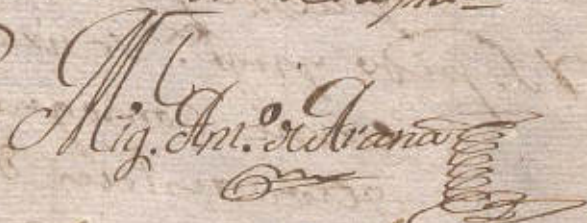 Mig. Ant.º de Arana